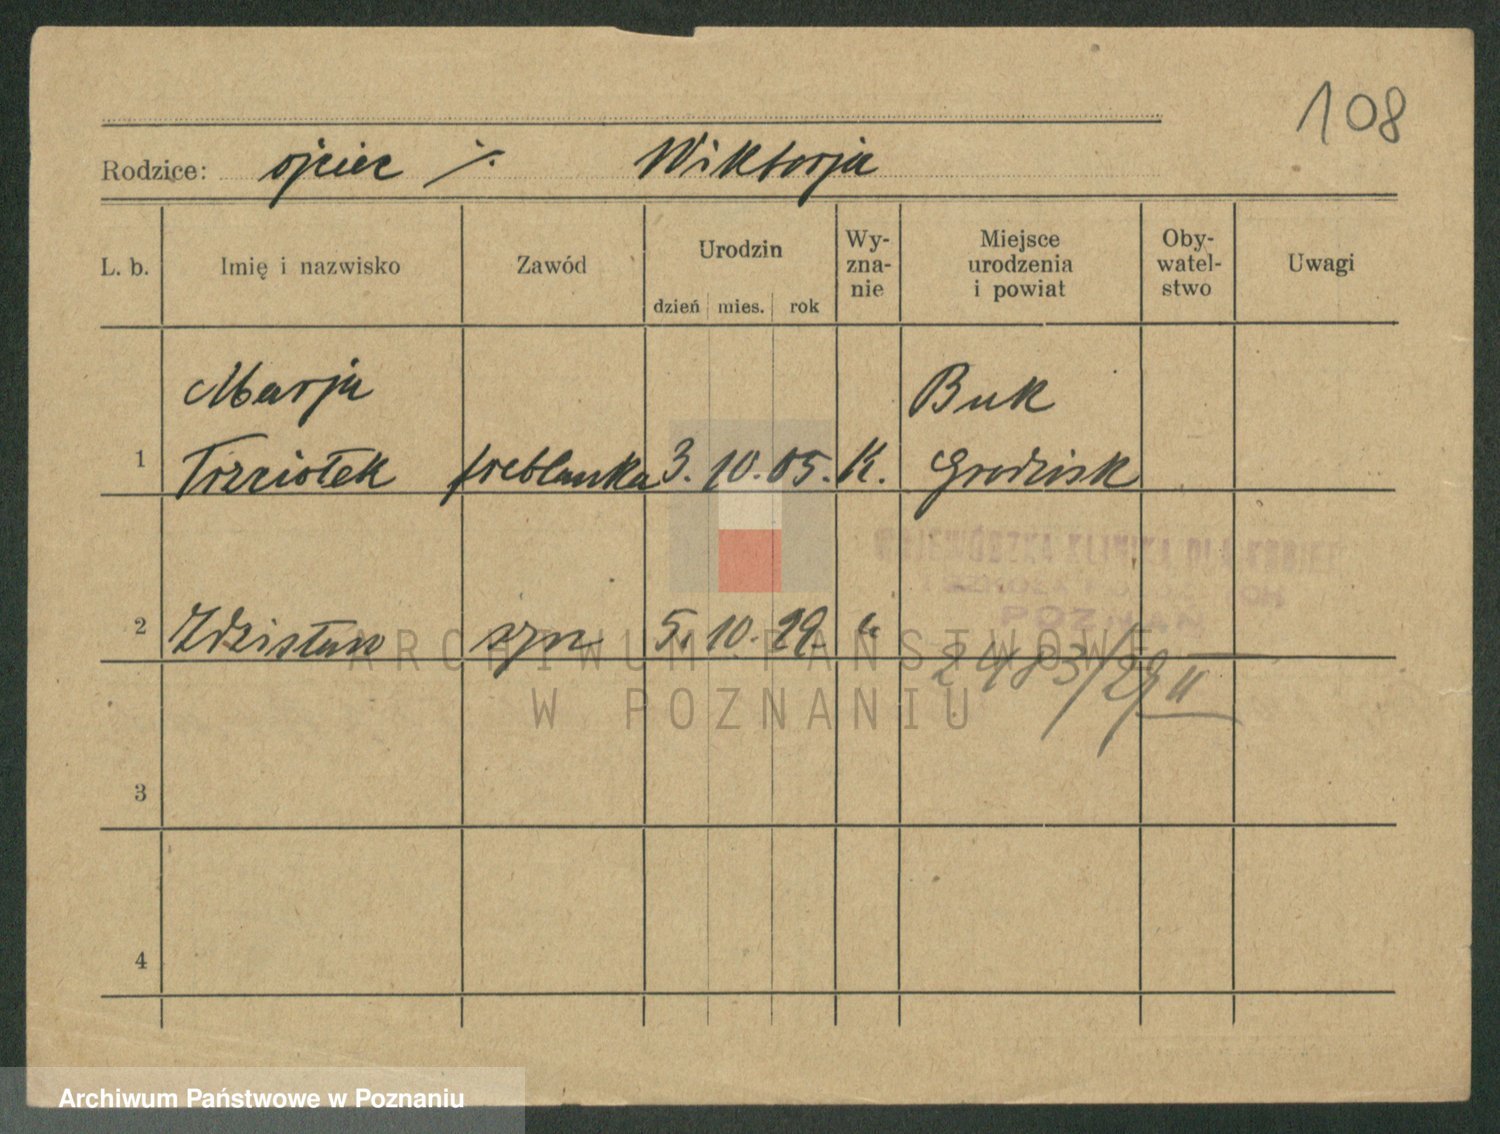 108
Rodzice: ojciec ·/. Wiktorja
L. b. Imię i nazwisko Zawód Urodzin dzień mies. rok Wy- zna- nie Miejsce urodzenia i powiat Oby- watel- stwo Uwagi
Marja Buk
1 Trzciołek freblanka 3. 10. 05. K. Grodzisk
WOJEWÓDZKA KLINIKA DLA KOBIET
I SZKOŁA
POZNAŃ
2 Zdzisław syn 5. 10. 29. "
2483/29 II
3
4
ARCHIWUM PAŃSTWOWE
W POZNANIU
Archiwum Państwowe w Poznaniu